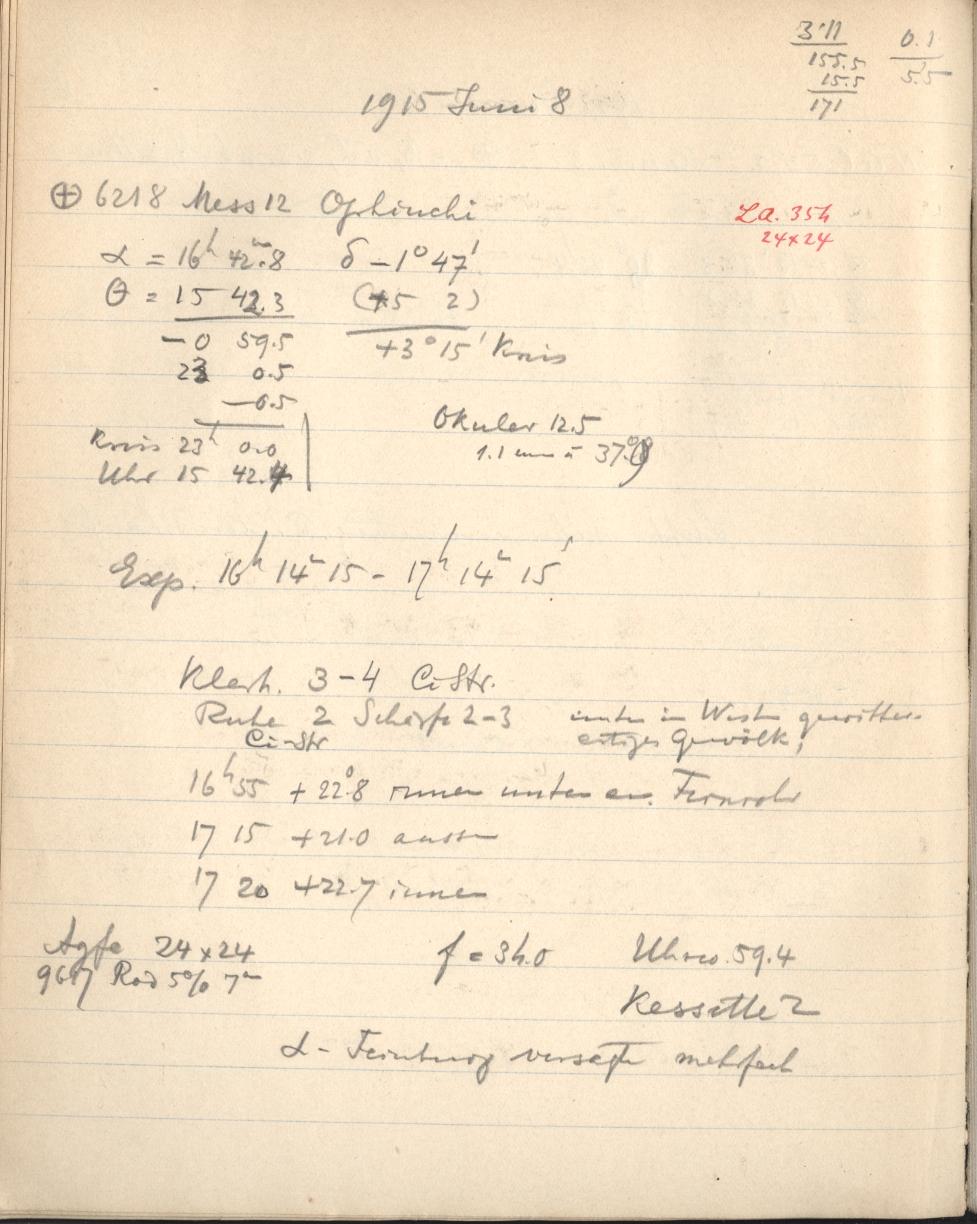 3.11 0.1
155.5 5.5
15.5
171
1915 Juni 8
⊕ 6218 Mess 12 Ophiuchi
La. 354
24x24
α = 16ʰ 42ᵐ.8 δ - 1° 47'
θ = 15 42.3 (+5 2)
- 0 59.5 +3° 15' Kreis
23 0.5
-0.5
Kreis 23ʰ 0.0
Uhr 15 42.4
Okular 12.5
1.1 mm
Exp. 16ʰ 14ᵐ 15 - 17ʰ 14ᵐ 15ˢ
Klarh. 3-4 Ci-Str.
Ruhe 2 Schärfe 2-3 unten im West gewitter-
Ci-Str artiges Gewölk,
16ʰ 55 +22°.8 innen unten am Fernrohr
17 15 +21.0 aussen
17 20 +22.7 innen
Agfa 24x24 f = 34.0 59.4
Rod 5% 7ᵐ
Kassette 2
α - versagte mehrfach